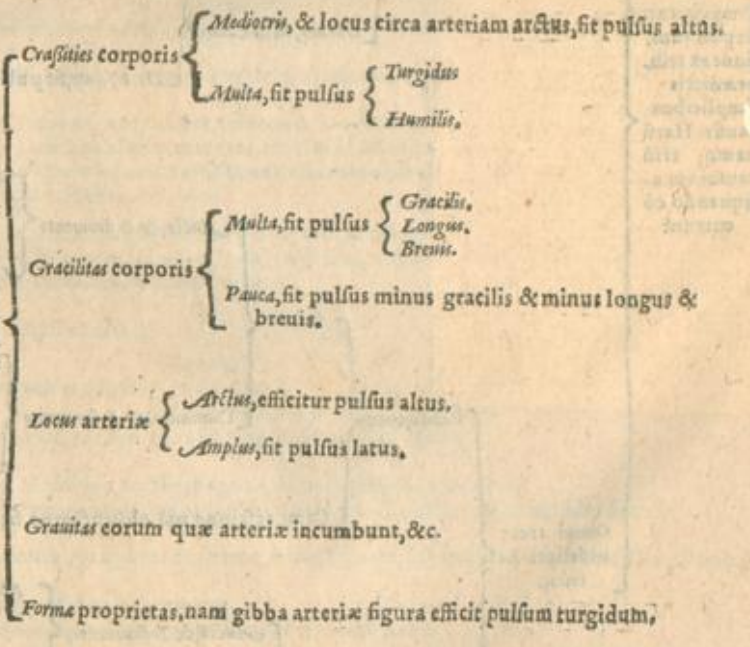 Mediocris, & locus circa arteriam arctus, fit pulſus altus.
Craſsities corporis
Multa, fit pulſus
Turgidus
Humilis.
Gracilitas corporis
Multa, fit pulſus
Gracilis.
Longus.
Breuis.
Pauca, fit pulſus minus gracilis & minus longus &
breuis.
Locus arteriæ
Arctus, efficitur pulſus altus.
Amplus, fit pulſus latus.
Grauitas eorum quæ arteriæ incumbunt, &c.
Formæ proprietas, nam gibba arteriæ figura efficit pulſum turgidum,